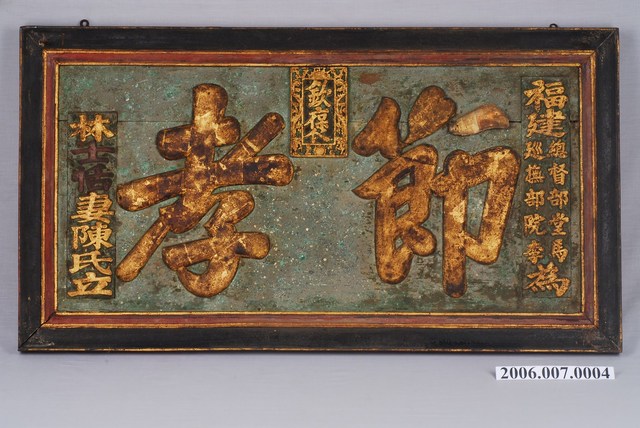 福建
總督部堂馬
巡撫部院李
為
節孝
欽褒
林士
妻陳氏立
2006.007.0004